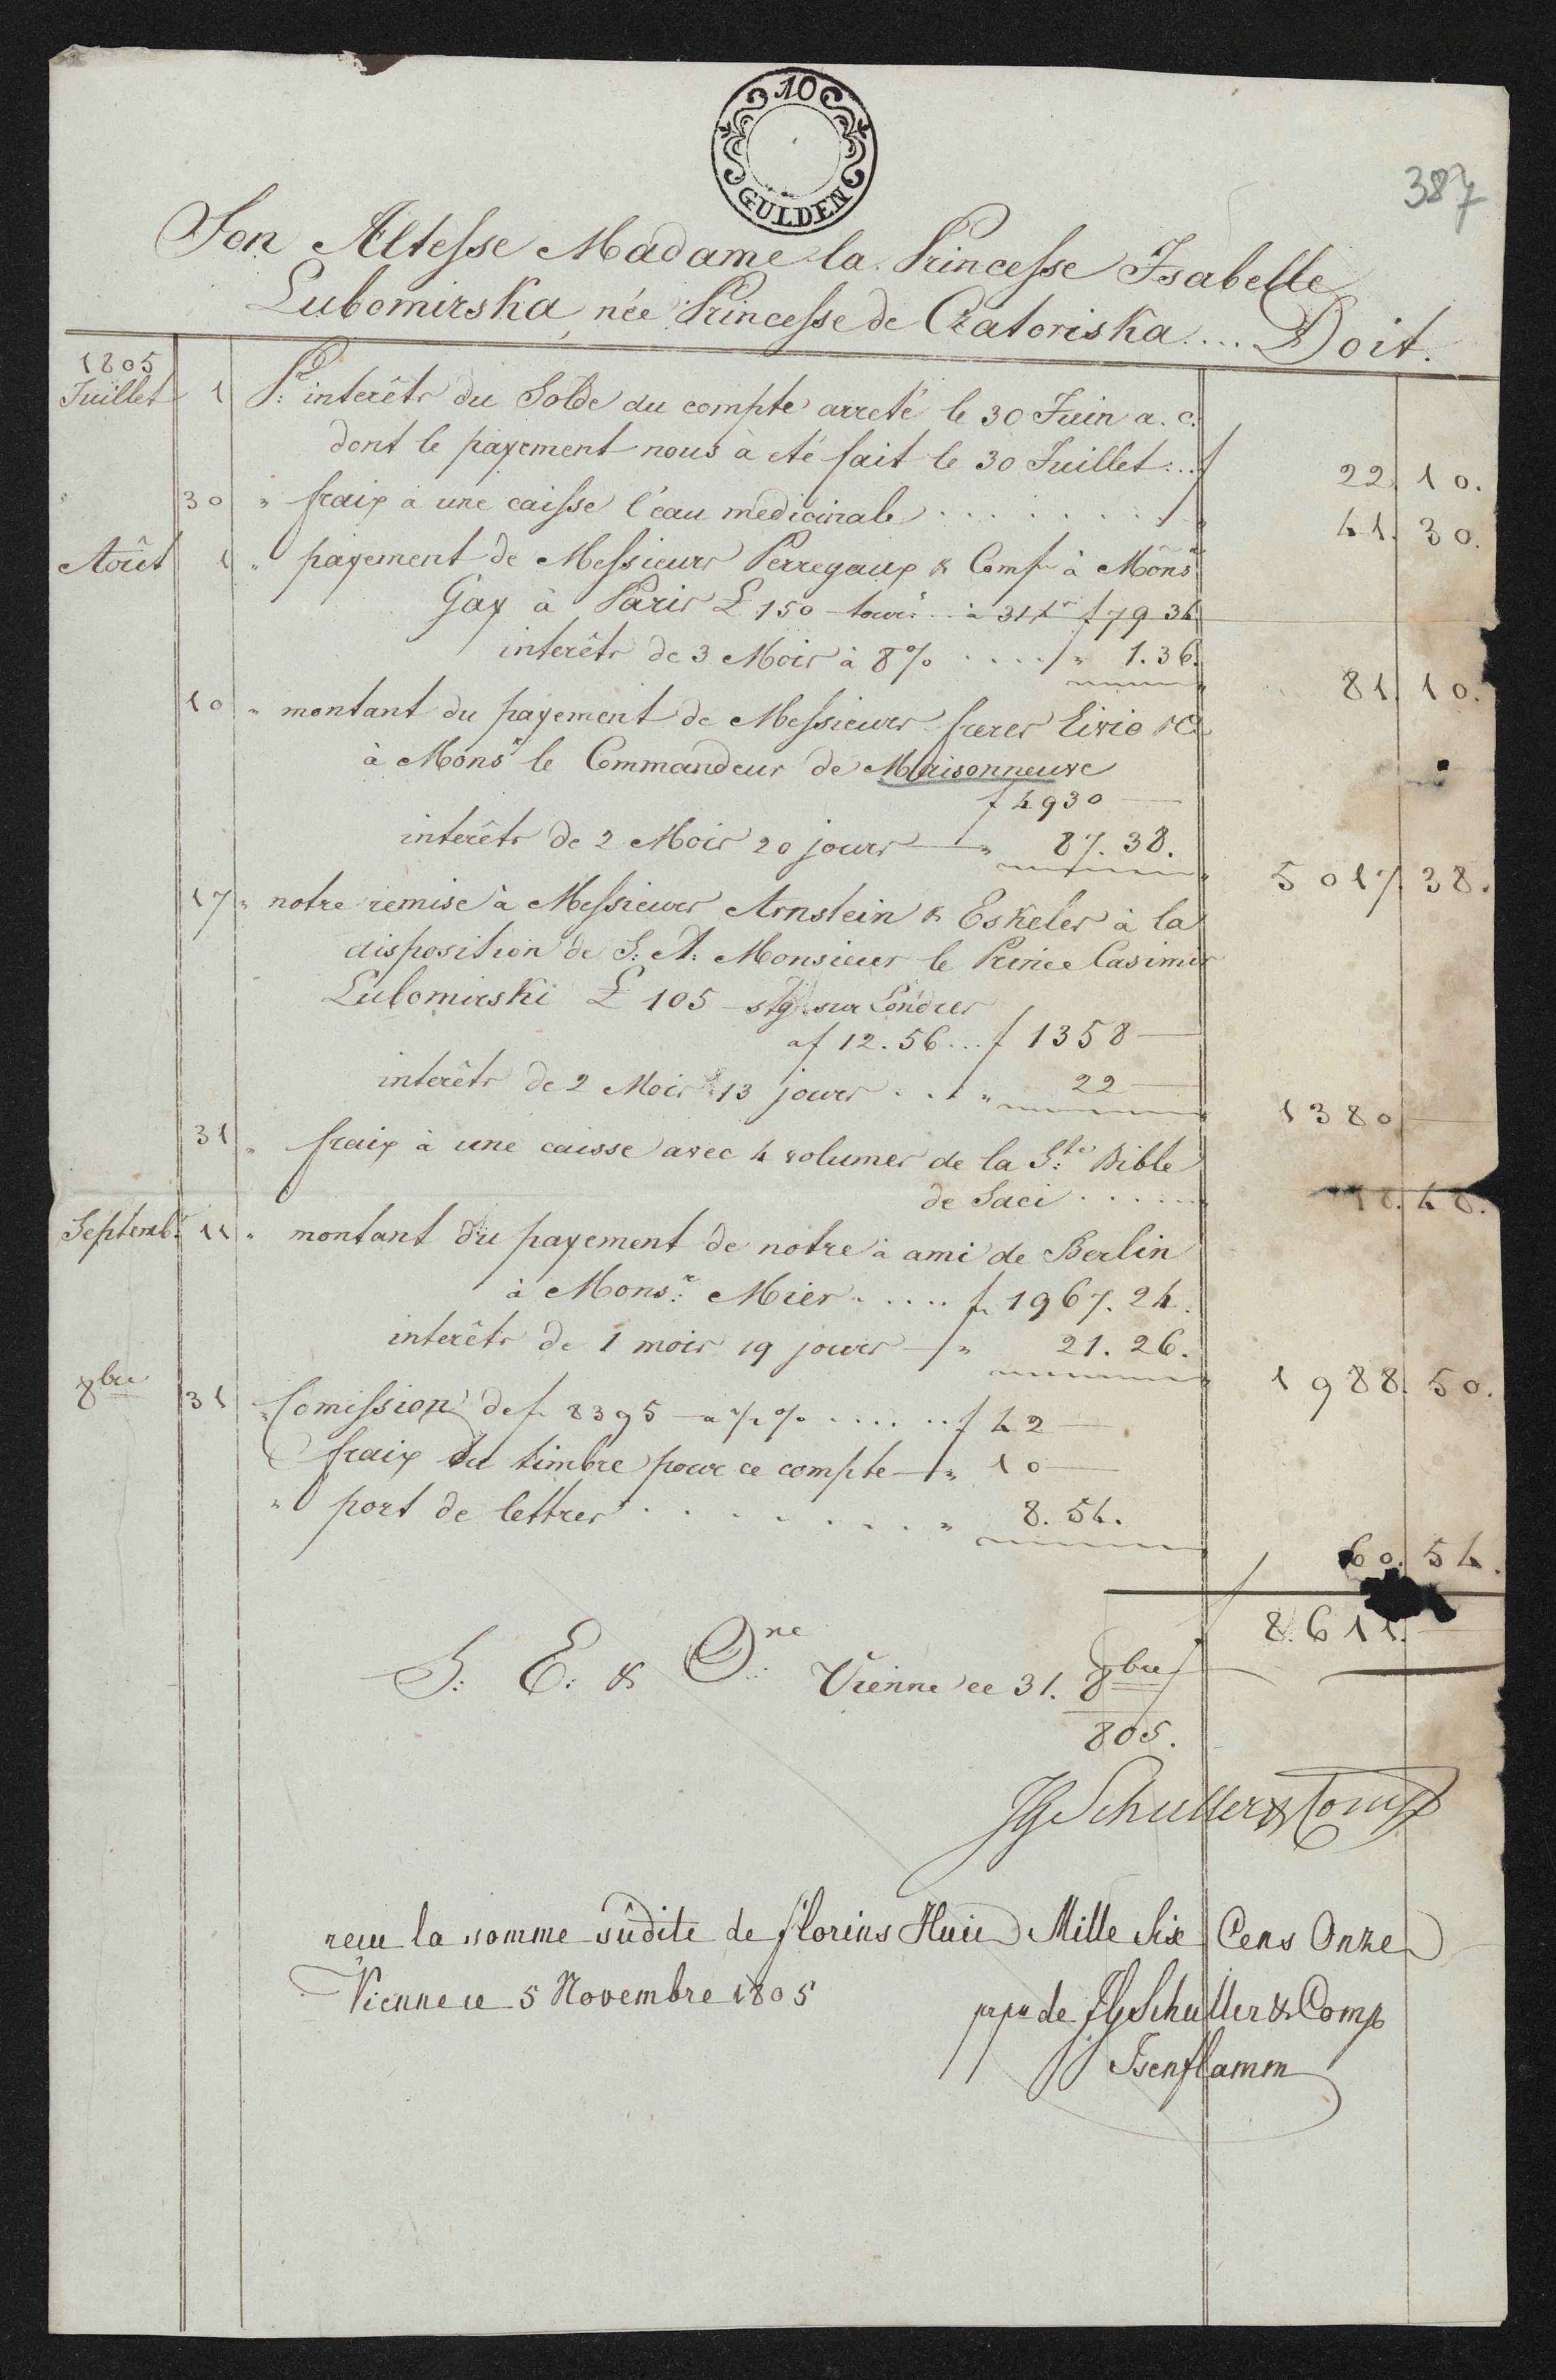 10
GULDEN
387
Son Altesse Madame la Princesse Isabelle
Lubomirska, née Princesse de Czatoriska.... Doit.
1805
Juillet 1 Pr: interêts du Solde du compte arreté le 30 Juin a. c.
dont le payement nous à eté fait le 30 Juillet... f 22. 10.
" 30 " fraix à une caisse l'eau medicinale . . . . . . . " 41. 30.
Août 1 " payement de Messieurs Perregaux & Comp à Monsr
Gay à Paris £ 150 tour: . . à 31 f 79 34
interêts de 3 Mois à 8% . . . . " 1. 36. 81. 10.
10 " montant du payement de Messieurs freres Livio & C
à Monsr le Commandeur de Maisonneuve
f 4930 —
interêts de 2 Mois 20 jours — " 87. 38. 5017. 38.
17 " notre remise à Messieurs Arnstein & Eskeles à la
disposition de S: A: Monsieur le Prince Casimir
Lubomirski £ 105 — stg sur Londres
af 12. 56 ... f 1358 —
interêts de 2 Mois 13 jours . . . " 22 — 1380 —
31 " fraix à une caisse avec 4 volumes de la Ste: Bible
de Saci . . . . . . 18. 48.
Septembr 11 " montant du payement de notre à ami de Berlin
à Monsr: Mier . . . . . f 1967. 24.
interêts de 1 mois 19 jours — " 21. 26. 1988. 50.
8bre 31 " Comission de f 8395 — a ½ % . . . . . . f 42 —
fraix du timbre pour ce compte — " 10 —
" port de lettres . . . . . . . . . " 8. 54. 60. 54.
f 8.611. —
S: E: & One: Vienne ce 31. 8bre
805.
JG Schuller & Comp
recu la somme sûdite de florins Huit Mille Six Cens Onze
Vienne ce 5 Novembre 1805 de JG Schuller & Comp
Isenflamm